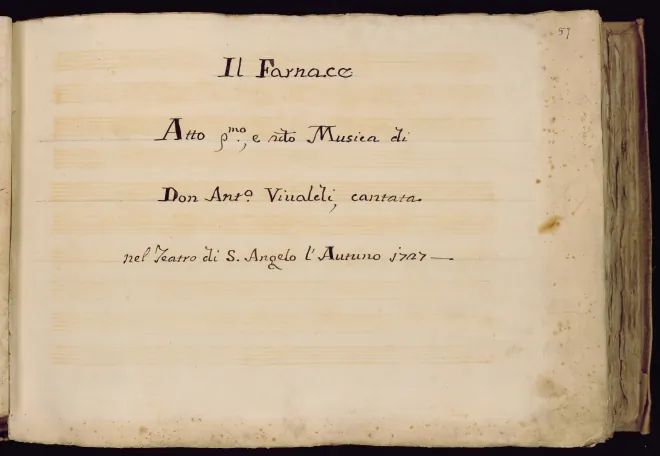 Il Farnace
Atto p.mo, e Musica di
Don Ant.o Viualdi, cantata
nel Teatro di S. Angelo l' Autuno 1727 —